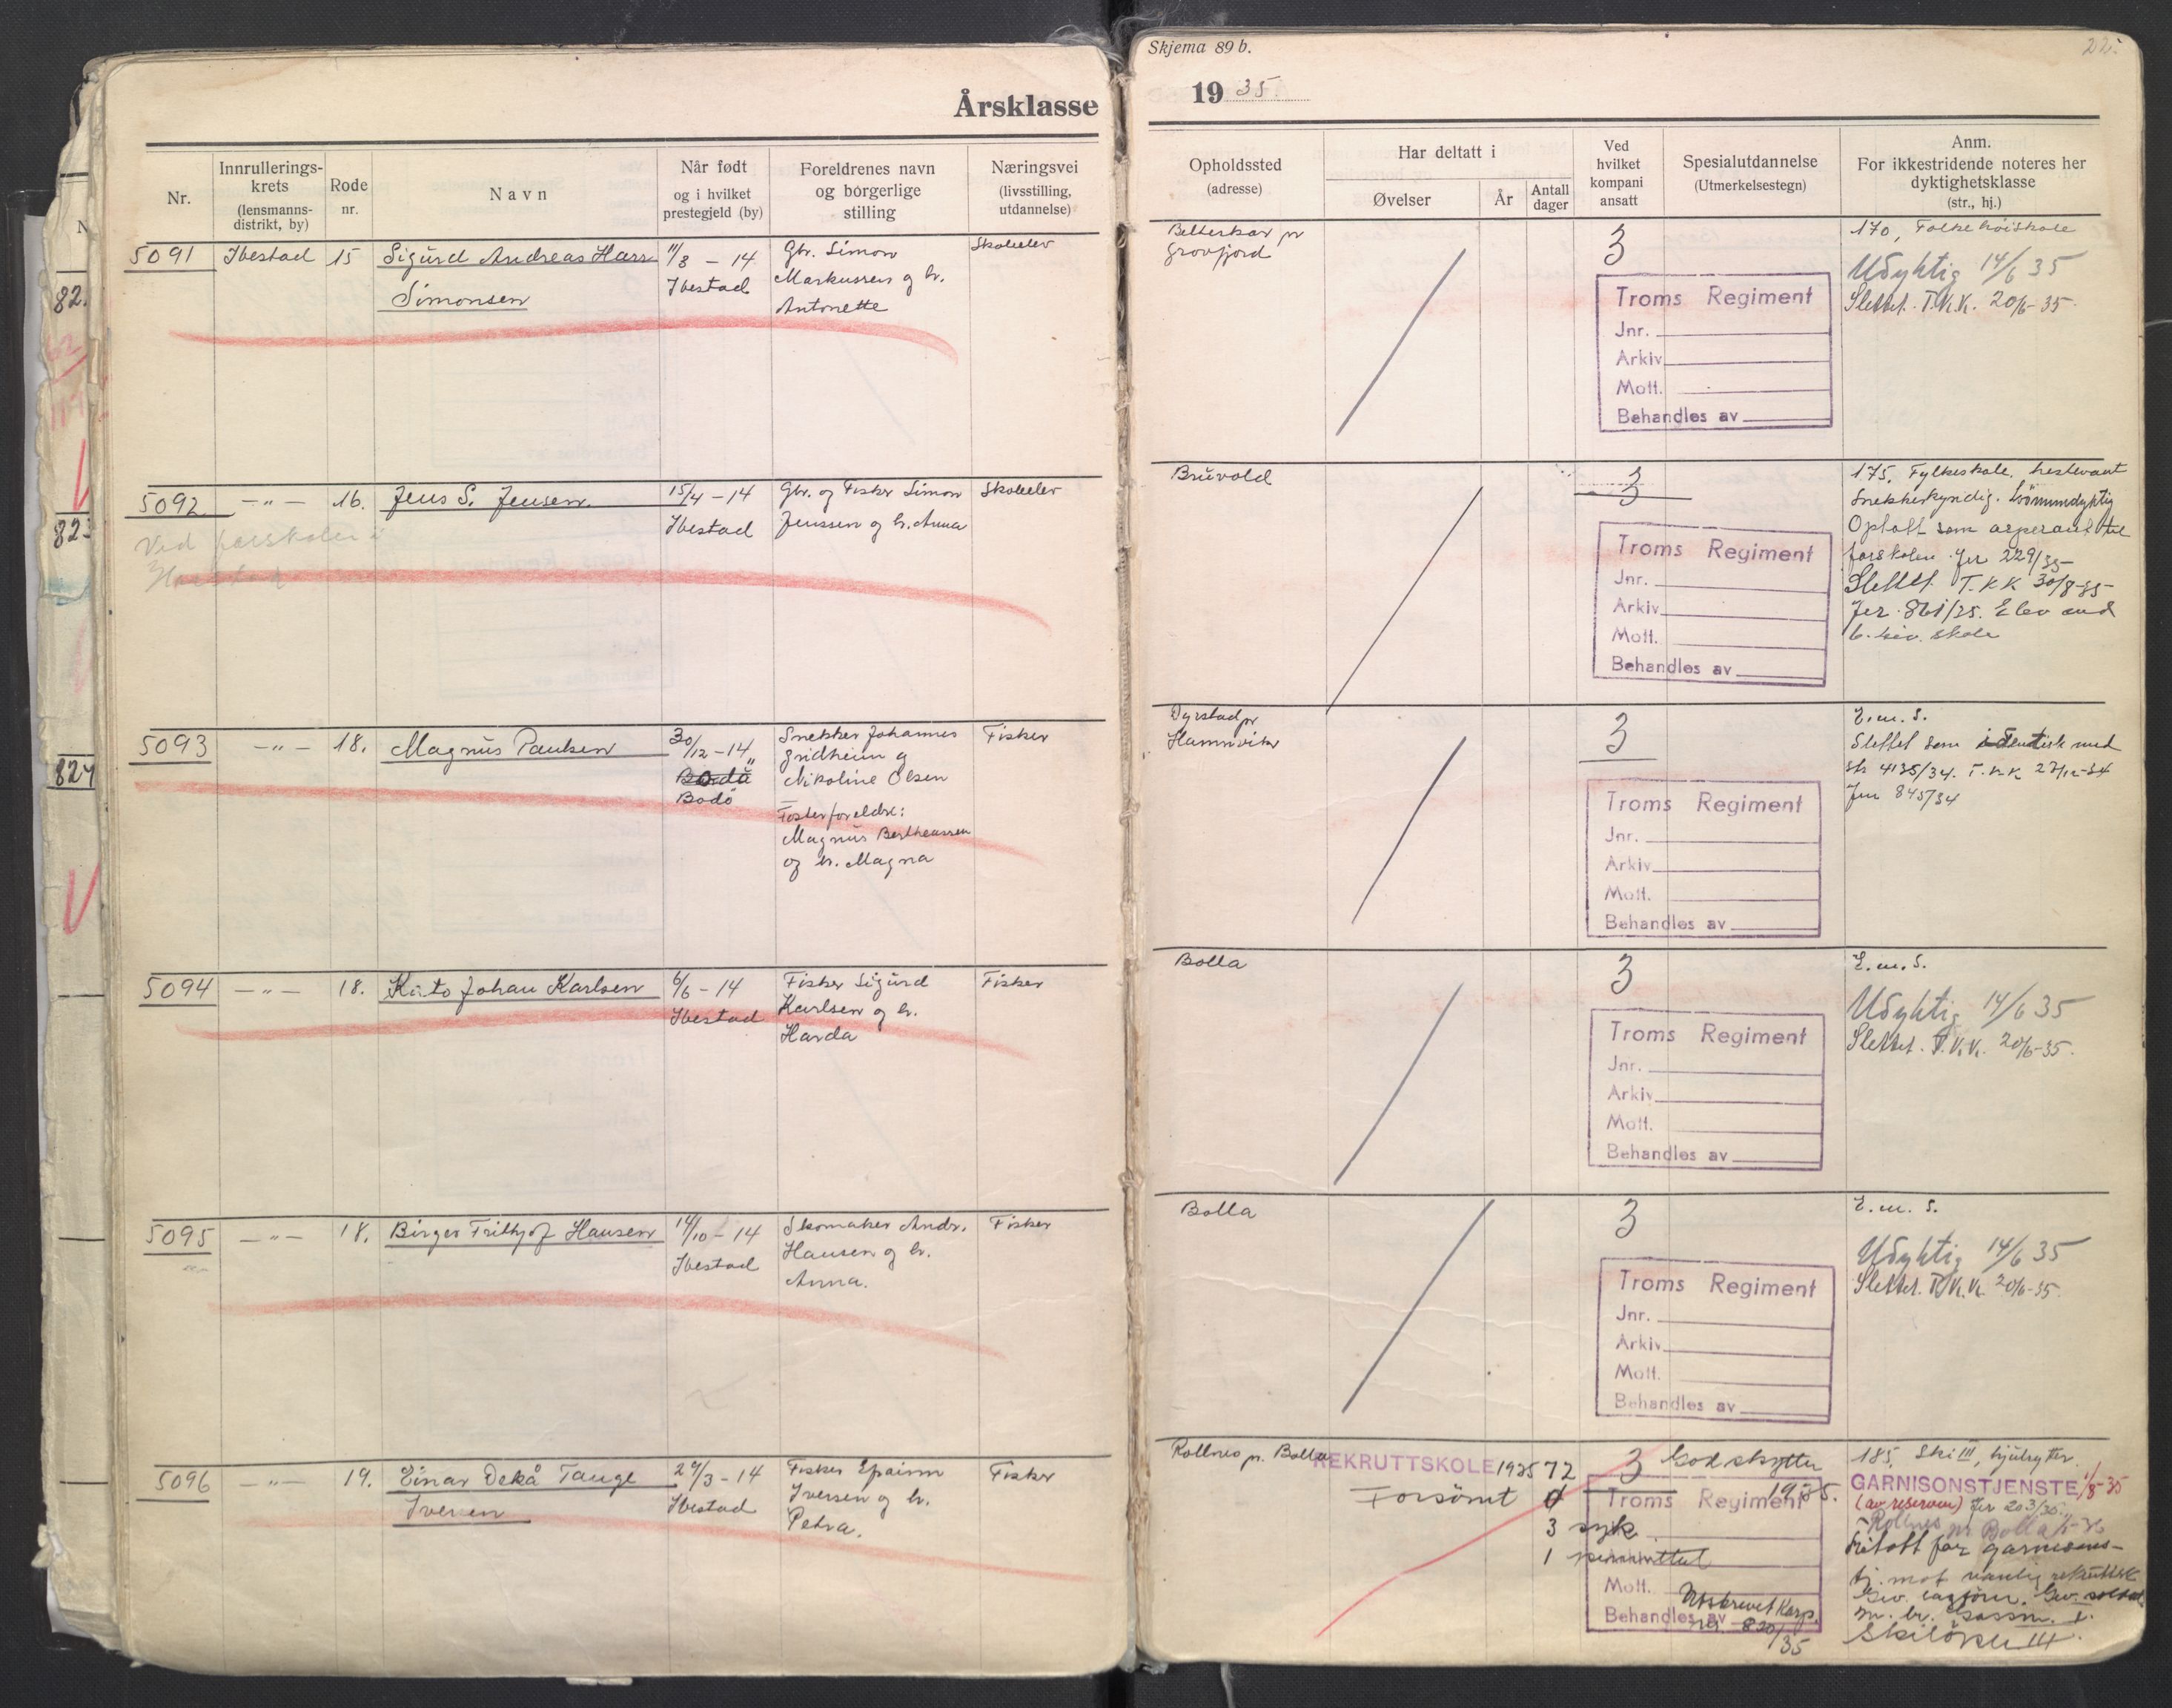 Årsklasse
Nr.
Innrullerings-
krets
(lensmanns-
distrikt, by)
Rode
nr.
Navn
Når født
og i hvilket
prestegjeld (by)
Foreldrenes navn
og borgerlige
stilling
Næringsvei
(livsstilling,
utdannelse)
5091 Ibestad 15 Sigurd Andreas Hans 11/3 - 14 Gbr. Simon Skoleelev
Simonsen Ibestad Markussen og h.
Antonette
5092 -"- 16. Jens S. Jensen 15/4 - 14 Gbr. og Fisker Simon Skoleelev
Ibestad Jenssen og h. Anna
Ved forskolen i
Harstad
5093 -"- 18. Magnus Paulsen 30/12 - 14 Snekker Johannes Fisker
Gridheim og
Nikoline Olsen
Bodö
Fosterforeldre:
Magnus Bertheussen
og h. Magna
5094 -"- 18. Kåto Johan Karlsen 6/6 - 14 Fisker Sigurd Fisker
Ibestad Karlsen og h.
Harda
5095 -"- 18. Birger Frithjof Hansen 14/10 - 14 Skomaker Andr. Fisker
Ibestad Hansen og h.
Anna.
5096 -"- 19. Einar Dekå Tauge 29/3 - 14 Fisker Epaim Fisker
Iversen Ibestad Iversen og h.
Petra.
82.
823
824
Skjema 89 b.
1935
Opholdssted
(adresse)
Har deltatt i
Øvelser
År
Antall
dager
Ved
hvilket
kompani
ansatt
Spesialutdannelse
(Utmerkelsestegn)
Anm.
For ikkestridende noteres her
dyktighetsklasse
(str., hj.)
Belterkar pr
Grovfjord
3
Troms Regiment
Jnr.
Arkiv
Mott.
Behandles av
170, Folkehöiskole
Udyktig 14/6 35
Slettet. T.K.K. 20/6-35.
Bruvold
3
Troms Regiment
Jnr.
Arkiv
Mott.
Behandles av
175, Fylkeskole, hestevant
Snekkerkyndig. Svömmedyktig
Optatt som asperant til
forskolen. Jnr 229/35
Slettet. T.K.K 30/8-35
Jnr. 861/35. Elev ved
6. skole
Dyrstad pr
Hamnvik
3
Troms Regiment
Jnr.
Arkiv
Mott.
Behandles av
E.m.S.
Slettet som identisk med
4135/34. T.K.K 27/12-34
Jnr 845/34
Bolla
3
Troms Regiment
Jnr.
Arkiv
Mott.
Behandles av
E.m.S.
Udyktig 14/6 35
Slettet. T.K.K. 20/6-35.
Bolla
3
Troms Regiment
Jnr.
Arkiv
Mott.
Behandles av
E.m.S.
Udyktig 14/6 35
Slettet. T.K.K. 20/6-35.
Rollnes p. Bolla
REKRUTTSKOLE 1935 72
Forsömt 4
3 syk
1 permittert
3
God skytter
1935.
Troms Regiment
Mott.
Behandles av
Utskrevet Korp.
820/35
185, Ski III, hjulrytter.
GARNISONSTJENSTE 1/8-35
(av reserven) Jnr 203/35
Rollnes pr. Bolla
Fritatt for garnisons-
tj. mot vanlig rekruttsk
Skilöper III.